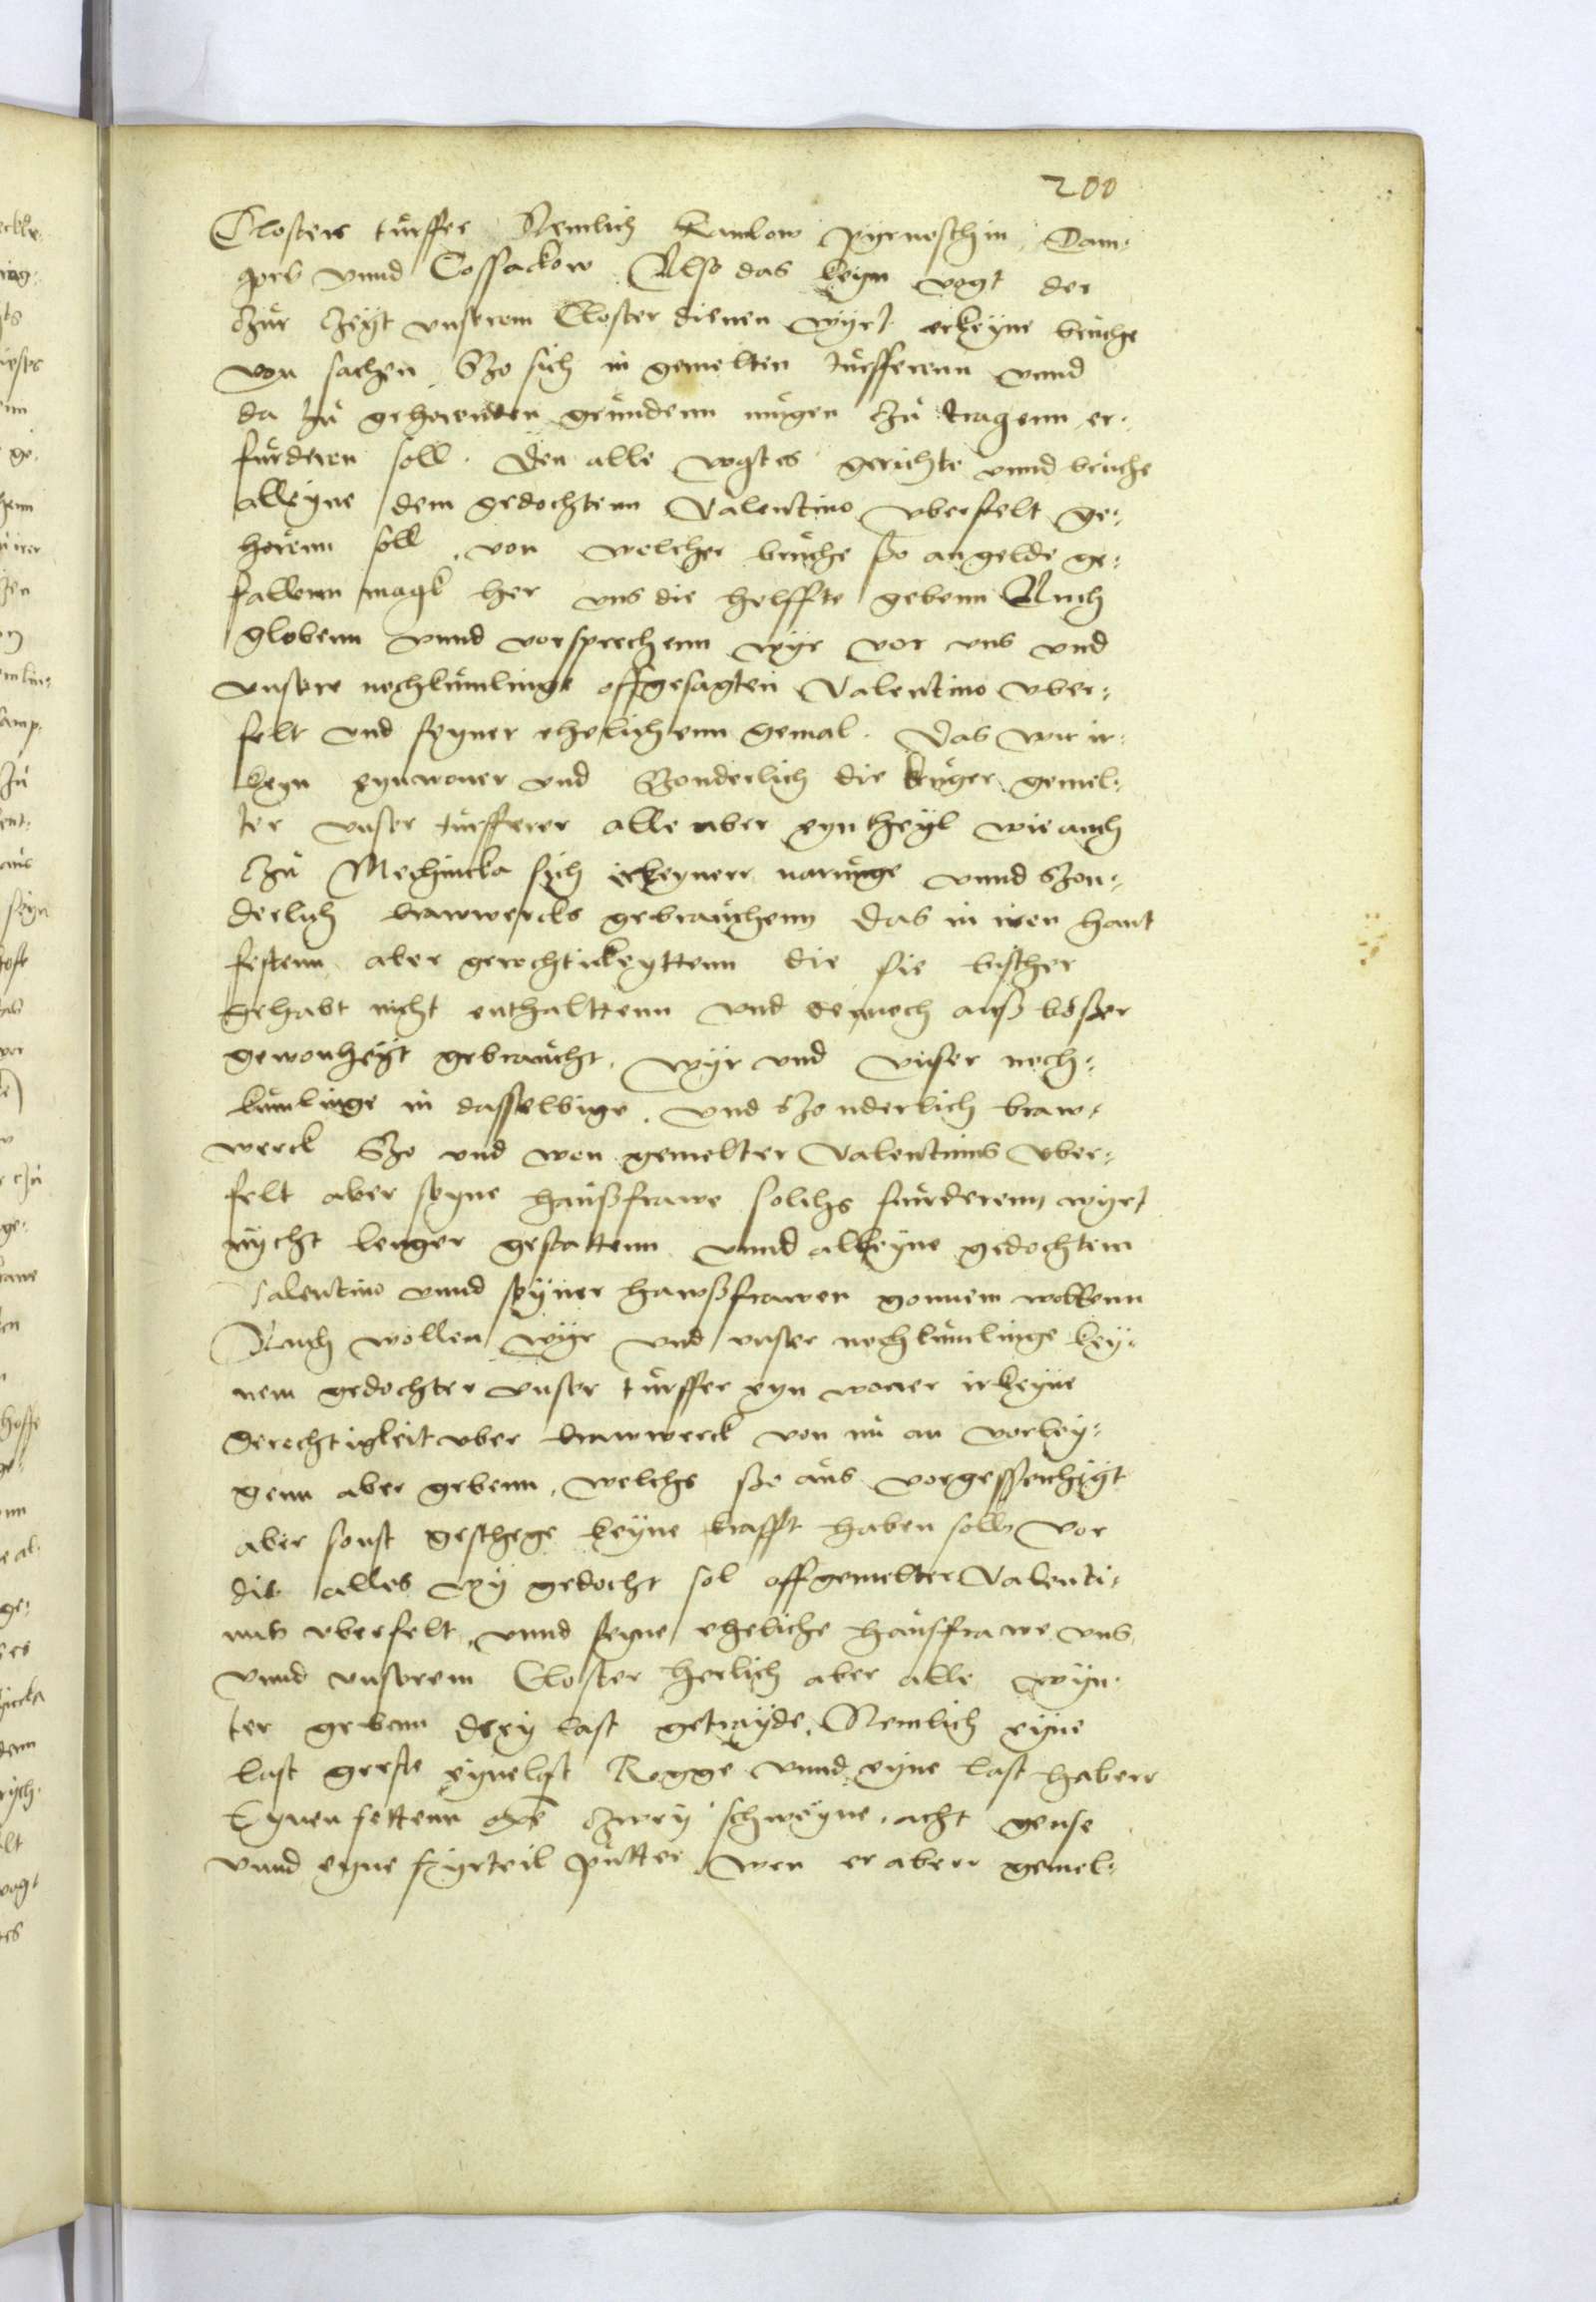 200
Closters turffer Nemlich Ramlow pyrvoschin Dam-
gerb vnnd Cossackow Also das keyn vogt der
Zur Zeyt vnserem Closter dienen wyrt erkeyne bruche
von sachen Szo sich in gemelten turfferenn vnnd
da zu gehorenden grundenn mugen zu tragenn er-
furderen soll. Den alle vogtes gerichte vnnd bruche
alleyne dem gedochtenn Valentino vberfelt ge-
horenn soll. von welcher bruche szo an gelde ge-
fallenn magk her vns die helffte gebenn Auch
globenn vnnd vorsprechenn wyr vor vns vnd
vnsere nochkumlinge offgesagten Valentino vber-
felt vnd seyner ehelichenn gemal. Das wir ir-
keyn eynwoner vnd Szonderlich die kruger gemel-
ter vnser turfferer alle aber eyn theyl wie auch
Zu Mechincka sich erkeynerr narunge vnnd Szon-
derlich brawwercks gebrauchenn das in iren hant
festenn aber gerechtickeyttenn die sie bisher
gehabt nicht enthalttenn vnd dennoch auss bosser
gewonheyt gebraucht. wyr vnd vnser noch-
kumlinge in dasselbige. vnd Szonderlich braw-
werck Szo vnd wen gemelter Valentinus vber-
felt aber seyne haussfrawe solichs furderenn wyrt
nycht lenger gestattenn vnnd alleyne gedochtem
Valentino vnnd seyner hawssfrawen gonnem wollenn
Auch wollen wyr vnd vnser nochkumlinge key-
nem gedochter vnser turffer eyn woner irkeyne
Gerechtigkeit vber brawwerck von nu an vorley-
genn aber gebenn. welchs szo aus vorgessenheyt
aber sonst geschege keyne krafft haben soll. Vor
dis alles wy gedocht sol offgemelter Valenti-
nus vberfelt vnnd seyne eheliche hausfrawe vns
vnnd vnserem Closter herlich aber alle wyn-
ter gebenn drey last getrayde. Nemlich eyne
last gerste eyne last Rogge vnnd eyne last haberr
Eynen fettenn oxe zwey schweyne. acht gense
vnnd eyne fyrteil putter wen er aberr gemel-